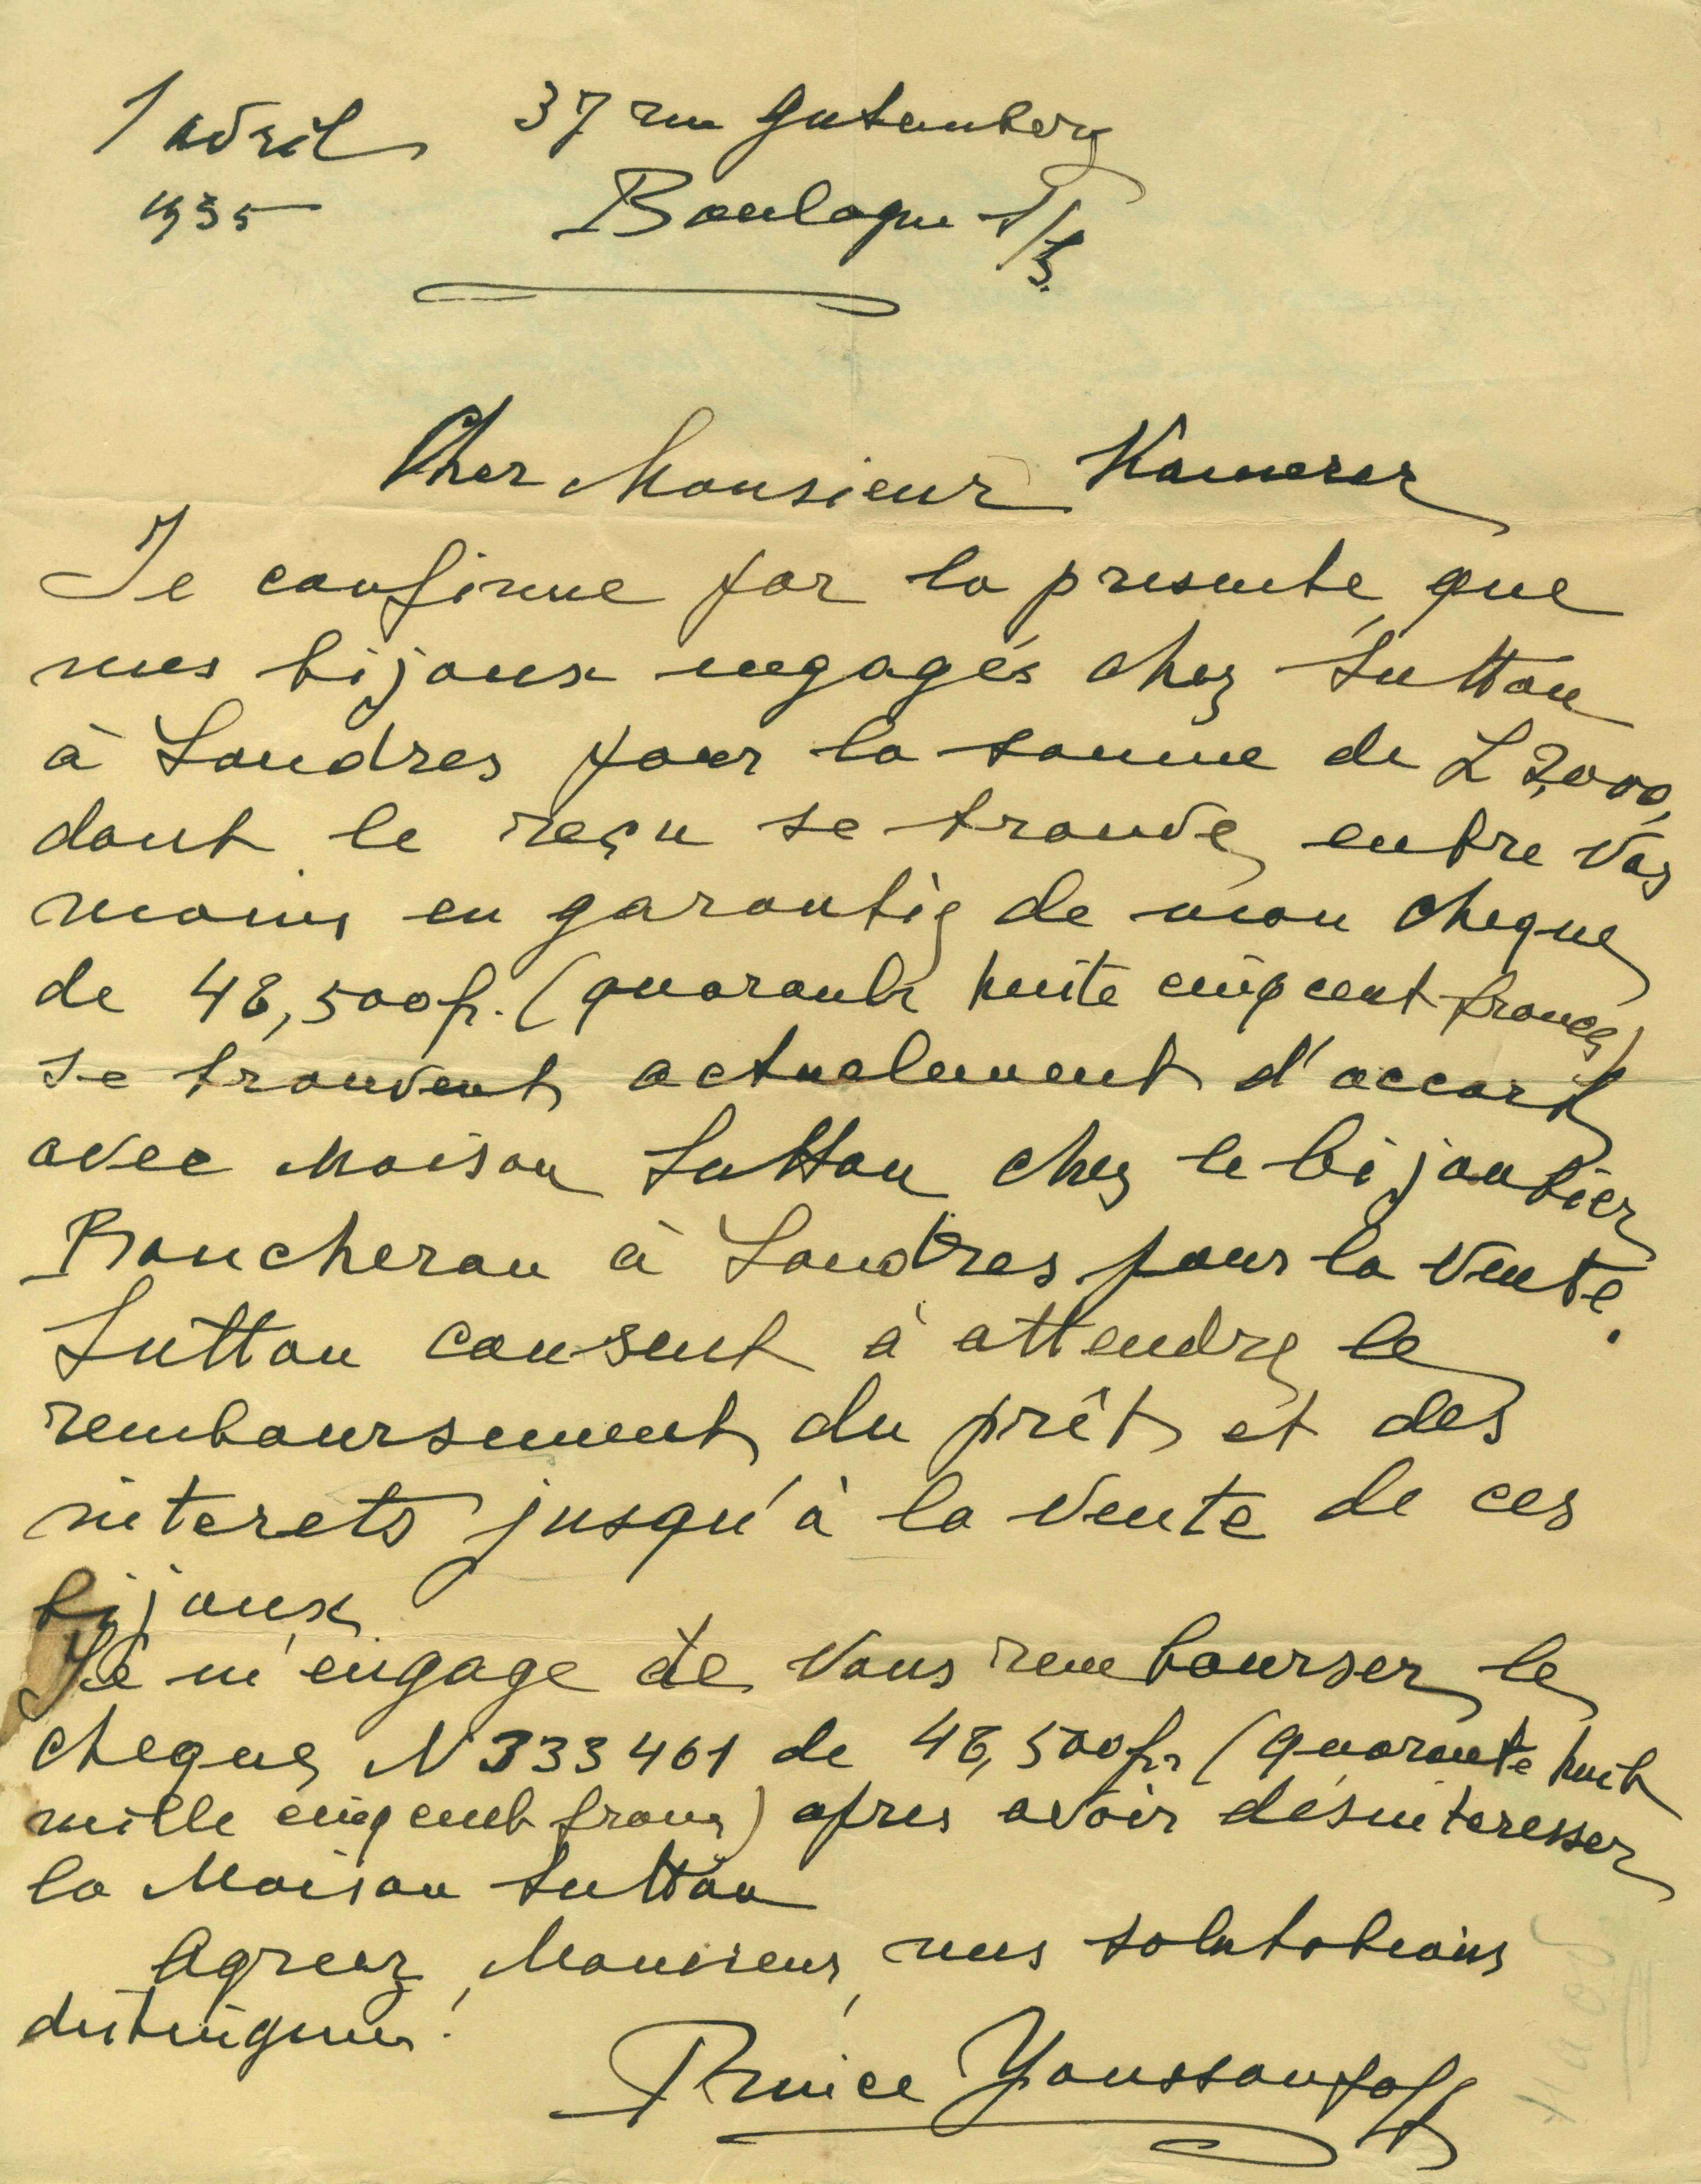 1 avril 37 rue Gutenberg
1935 Boulogne s/S.
Cher Monsieur Kamerer
Je confirme par la presente que
mes bijoux engagés chez Sutton
à Londres pour la somme de £ 2,000,
dont le reçu se trouve entre vos
mains en garantie de mon cheque
de 48,500 fr. (quarante huite cinq cent francs)
se trouvent actuelement d'accort
avec Maison Sutton chez le bijoutier
Boucheron à Londres pour la vente.
Sutton consent à attendre le
remboursement du prêt et des
interets jusqu'à la vente de ces
bijoux
Je m'engage de vous rembourser le
cheque N 333461 de 48,500 fr (quarante huit
mille cinq cent francs) apres avoir désinteresser
la Maison Sutton
Agreez, Monsieur, mes salutations
distingues!
Prince Youssoupoff